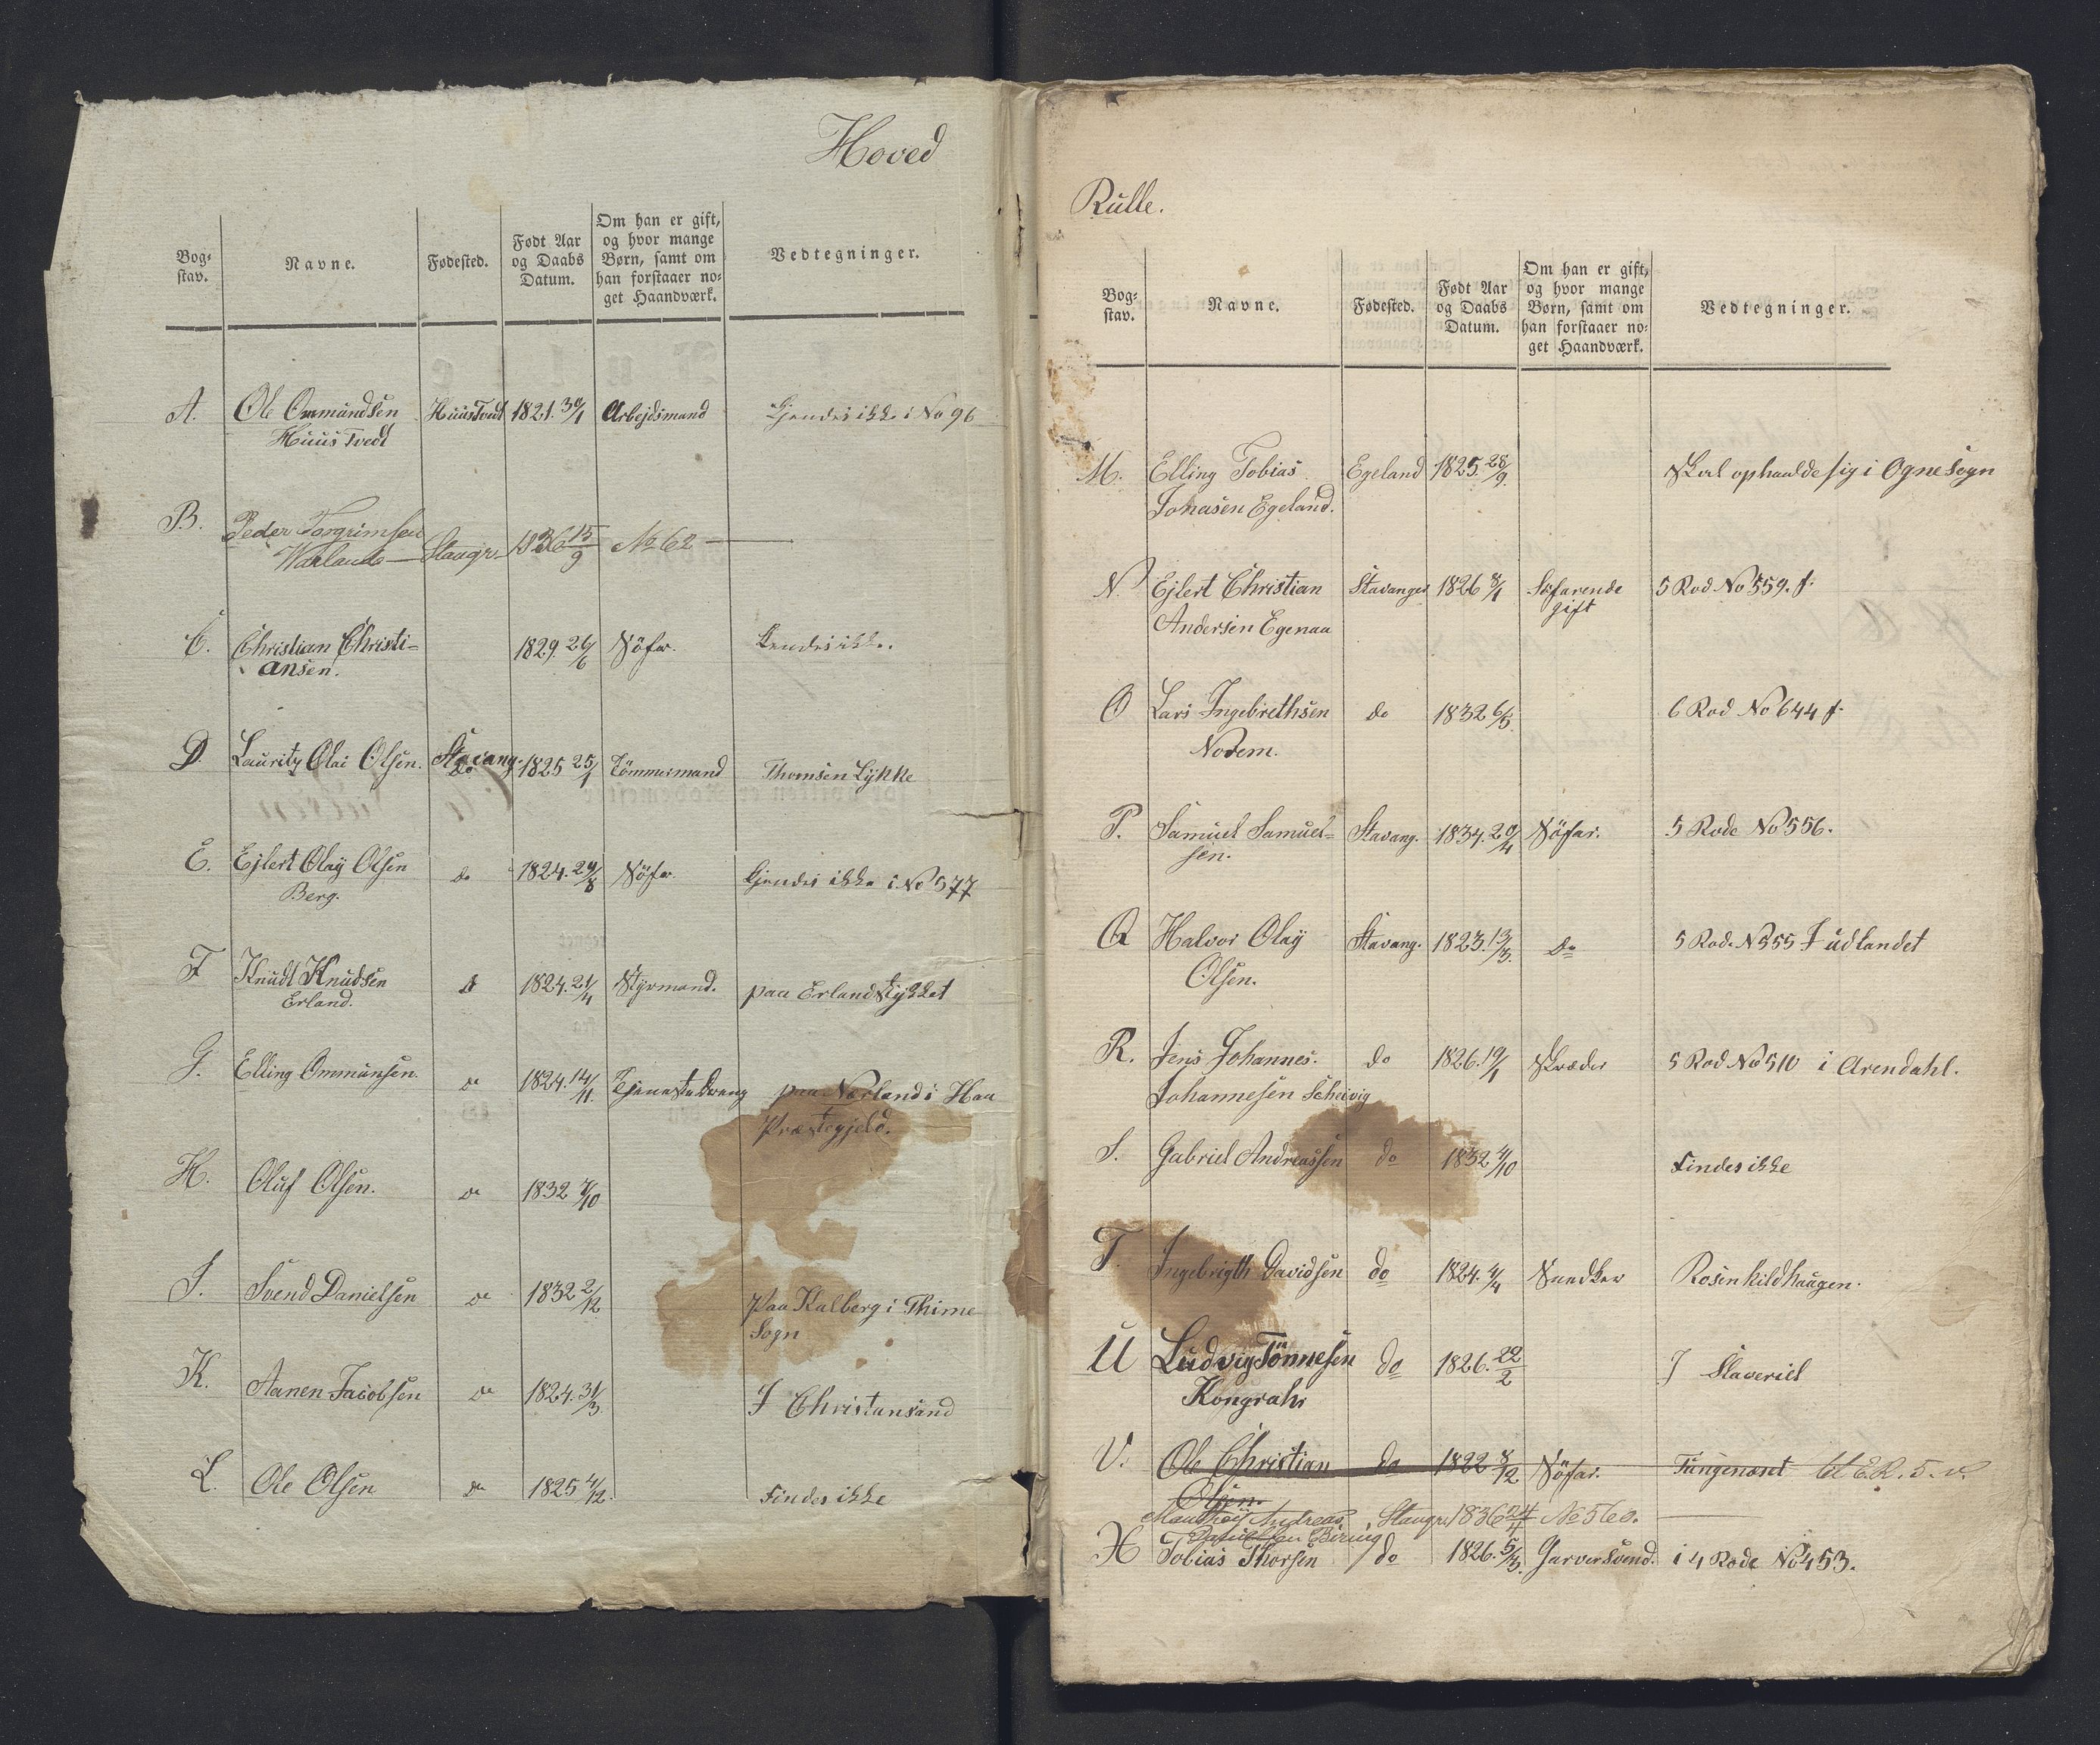 Hoved
Bog-
stav.
Navne.
Fødested.
Født Aar
og Daabs
Datum.
Om han er gift,
og hvor mange
Børn, samt om
han forstaaer no-
get Haandværk.
Vedtegninger.
A. Ole Ommundsen Huustvedt 1821. 30/1 Arbejdsmand Kjendes ikke i No 96
Huus Tvedt
B. Peder Torgrimsen
Warland Stavgr. 1836 15/9 No 62
C. Christian Christi= 1829. 26/6 Söfar. Kendes ikke.
ansen.
D. Lauritz Olai Olsen. Stavang. 1825 25/1 Tömmermand Thomsen Lykke
do
E. Ejlert Olaij Olsen do 1824. 29/8 Söfar. Kjendes ikke i No 577
Berg.
F Knudt Knudsen do 1824. 21/4 Styrmand. paa Erlandstykket
Erland.
G. Elling Ommunsen. do 1824. 14/11. Tjenestedreng paa Nærland i Haa
Præstegjeld.
H. Oluf Olsen. do 1832 7/10
I. Svend Danielsen do 1832 2/12. Paa Kalberg i Thime
Sogn
K. Aanen Jacobsen do 1824. 31/3 I Christansand
L. Ole Olsen do 1825 4/12. Findes ikke
Rulle.
Bog-
stav.
Navne.
Fødested.
Født Aar
og Daabs
Datum.
Om han er gift,
og hvor mange
Børn, samt om
han forstaaer no-
get Haandværk.
Vedtegninger.
M. Elling Tobias Egeland 1825. 28/9. Skal ophaalde sig i Ogne Sogn
Johasen Egeland.
N. Ejlert Christian Stavanger 1826 8/1 Søfarende 5 Rod No 559. f.
Andersen Egenaa gift
O Lars Ingebrethsen do 1832 6/5. 6 Rod No 644 f.
Nodem.
P. Samuel Samuel= Stavang. 1834. 20/4 Söfar. 5 Rode No 556.
sen.
Q Halvor Olaij Stavang. 1823. 13/3. do 5 Rode. N 555 I udlandet
Olsen.
R. Jens Johannes. do 1826. 19/1 Skræder 5 Rod No 510 i Arendahl.
Johannesen Scheivig
S. Gabriel Andreassen do 1832 4/10 Findes ikke
T. Ingebrigth Davidsen do 1824. 4/4 Snedker Rosenkildhaugen.
U Ludvig Tönnesen do 1826. 22/2 I Slaveriet
Kongrahr
V. Ole Christian do 1822 8/12 Söfar. Tungenæset til E.R. 5. v.
Olsen.
Andreas Stavgr. 1836 24/4 No 560.
Danielsen
X Tobias Thorsen do 1826. 5/3. Garversvend. i 4 Rode No 453.